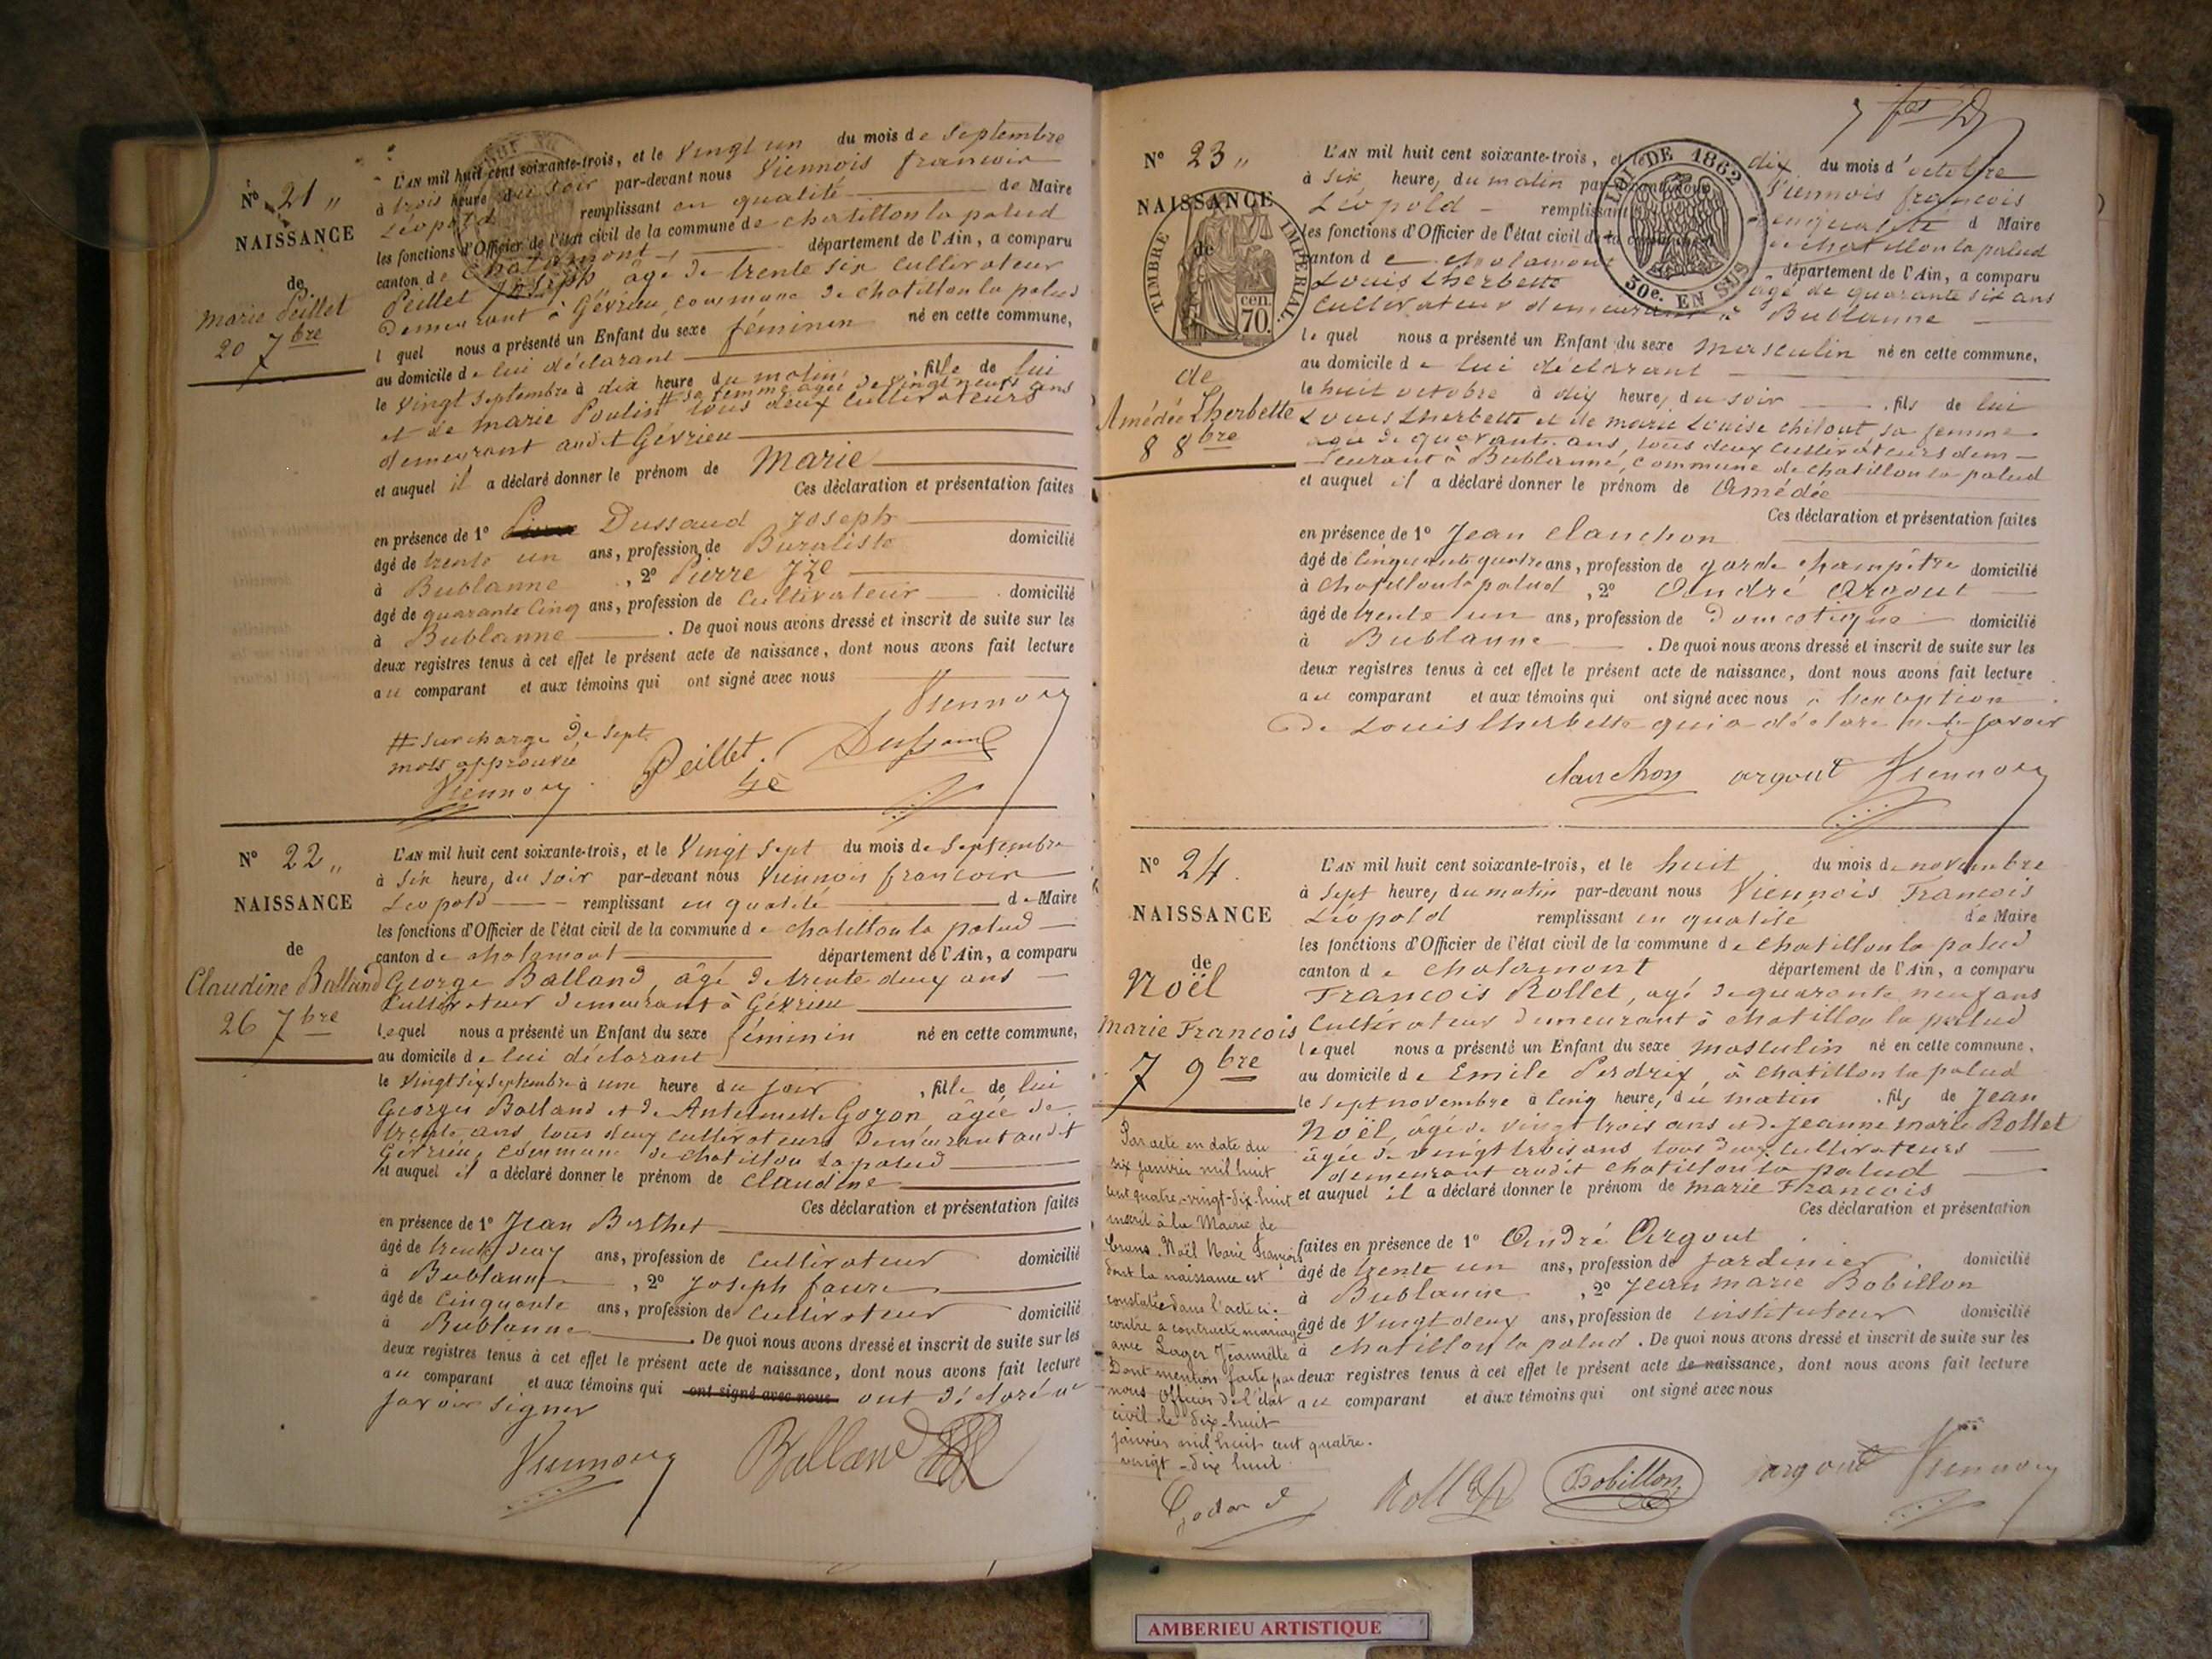 N° 21 "
NAISSANCE
de
Marie Peillet
20 7bre
L'AN mil huit cent soixante-trois, et le Vingt un du mois de Septembre
à trois heure du soir par-devant nous Viennois francois
Léopold remplissant en qualité de Maire
les fonctions d'Officier de l'état civil de la commune de chatillon la palud
canton de Chalamont département de l'Ain, a comparu
Peillet Joseph âgé de trente six cultivateur
demeurant à Gévrieu, commune de chatillon la palud
l quel nous a présenté un Enfant du sexe féminin né en cette commune,
au domicile de lui déclarant
le vingt septembre à dix heure du matin, fille de lui
# sa femme agée de vingt neuf ans
et de marie Poulin tous deux cultivateurs
demeurant audit Gévrieu
et auquel il a déclaré donner le prénom de Marie
Ces déclaration et présentation faites
en présence de 1° Dussaud Joseph
âgé de trente un ans, profession de Buraliste domicilié
à Bublanne, 2° Pierre Izé
âgé de quarante cinq ans, profession de cultivateur domicilié
à Bublanne. De quoi nous avons dressé et inscrit de suite sur les
deux registres tenus à cet effet le présent acte de naissance, dont nous avons fait lecture
au comparant et aux témoins qui ont signé avec nous
# surcharge de sept
mots approuvée
Viennois
Peillet Dussaud Viennois
Izé
N° 22 "
NAISSANCE
de
Claudine Balland
26 7bre
L'AN mil huit cent soixante-trois, et le Vingt sept du mois de Septembre
à six heure, du soir par-devant nous Viennois francois
Léopold remplissant en qualité de Maire
les fonctions d'Officier de l'état civil de la commune de chatillon la palud
canton de chalamont département de l'Ain, a comparu
George Balland, âgé de trente deux ans
Cultivateur demeurant à Gévrieu
lequel nous a présenté un Enfant du sexe féminin né en cette commune,
au domicile de lui déclarant
le vingt six septembre à une heure du soir, fille de lui
Georges Balland et de Antelmette Goyon, âgée de
trente ans, tous deux cultivateurs demeurant audit
Gévrieu, commune de chatillon la palud
et auquel il a déclaré donner le prénom de Claudine
Ces déclaration et présentation faites
en présence de 1° Jean Berthet
âgé de trente deux ans, profession de cultivateur domicilié
à Bublanne, 2° Joseph faure
âgé de cinquante ans, profession de cultivateur domicilié
à Bublanne. De quoi nous avons dressé et inscrit de suite sur les
deux registres tenus à cet effet le présent acte de naissance, dont nous avons fait lecture
au comparant et aux témoins qui ont signé avec nous ont déclaré ne
savoir signer
Viennois Balland
N° 23 "
NAISSANCE
de
TIMBRE IMPERIAL
70 cen.
de
Amédée Lherbette
8 8bre
LOI DE 1862
50c. EN SUS
L'AN mil huit cent soixante-trois, et le dix du mois d'octobre
à six heure, du matin par-devant nous Viennois francois
Léopold remplissant en qualité d Maire
les fonctions d'Officier de l'état civil de la commune de chatillon la palud
canton de chalamont département de l'Ain, a comparu
Louis Lherbette agé de quarante six ans
cultivateur demeurant à Bublanne
lequel nous a présenté un Enfant du sexe masculin né en cette commune,
au domicile de lui déclarant
le huit octobre à dix heure, du soir, fils de lui
Louis Lherbette et de marie Louise chilout sa femme
agée de quarante ans, tous deux cultivateurs dem-
eurant à Bublanne, commune de chatillon la palud
et auquel il a déclaré donner le prénom de Amédée
Ces déclaration et présentation faites
en présence de 1° Jean Clanchon
âgé de cinquante quatre ans, profession de garde champêtre domicilié
à Chatillon la palud, 2° André Argout
âgé de trente un ans, profession de Domestique domicilié
à Bublanne. De quoi nous avons dressé et inscrit de suite sur les
deux registres tenus à cet effet le présent acte de naissance, dont nous avons fait lecture
au comparant et aux témoins qui ont signé avec nous à l'exception
de Louis Lherbette qui a déclaré ne le savoir
clanchon argout Viennois
N° 24.
NAISSANCE
de
Noël
Marie Francois
7 9bre
L'AN mil huit cent soixante-trois, et le huit du mois de novembre
à sept heure, du matin par-devant nous Viennois Francois
Léopold remplissant en qualité de Maire
les fonctions d'Officier de l'état civil de la commune de Chatillon la palud
canton de Chalamont département de l'Ain, a comparu
Francois Rollet, agé de quarante neuf ans
Cultivateur demeurant à Chatillon la palud
lequel nous a présenté un Enfant du sexe masculin né en cette commune,
au domicile de Emile Perdrix, à Chatillon la palud
le sept novembre à cinq heure, du matin, fils de Jean
Noël, agé de vingt trois ans et de Jeanne Marie Rollet
âgée de vingt trois ans, tous deux cultivateurs
demeurant audit Chatillon la palud
et auquel il a déclaré donner le prénom de Marie Francois
Ces déclaration et présentation
faites en présence de 1° André Argout
âgé de trente un ans, profession de Jardinier domicilié
à Bublanne, 2° Jean marie Bobillon
âgé de vingt deux ans, profession de instituteur domicilié
à Chatillon la palud. De quoi nous avons dressé et inscrit de suite sur les
deux registres tenus à cet effet le présent acte de naissance, dont nous avons fait lecture
au comparant et aux témoins qui ont signé avec nous
Par acte en date du
six janvier mil huit
cent quatre-vingt-dix-huit
inscrit à la Mairie de
Crans, Noël Marie François
dont la naissance est
constatée dans l'acte ci-
contre a contracté mariage
avec Lager Jeannette
Dont mention faite par
nous Officier de l'état
civil le dix-huit
janvier mil huit cent quatre-
vingt-dix huit.
Rollet Bobillon argout Viennois
AMBERIEU ARTISTIQUE